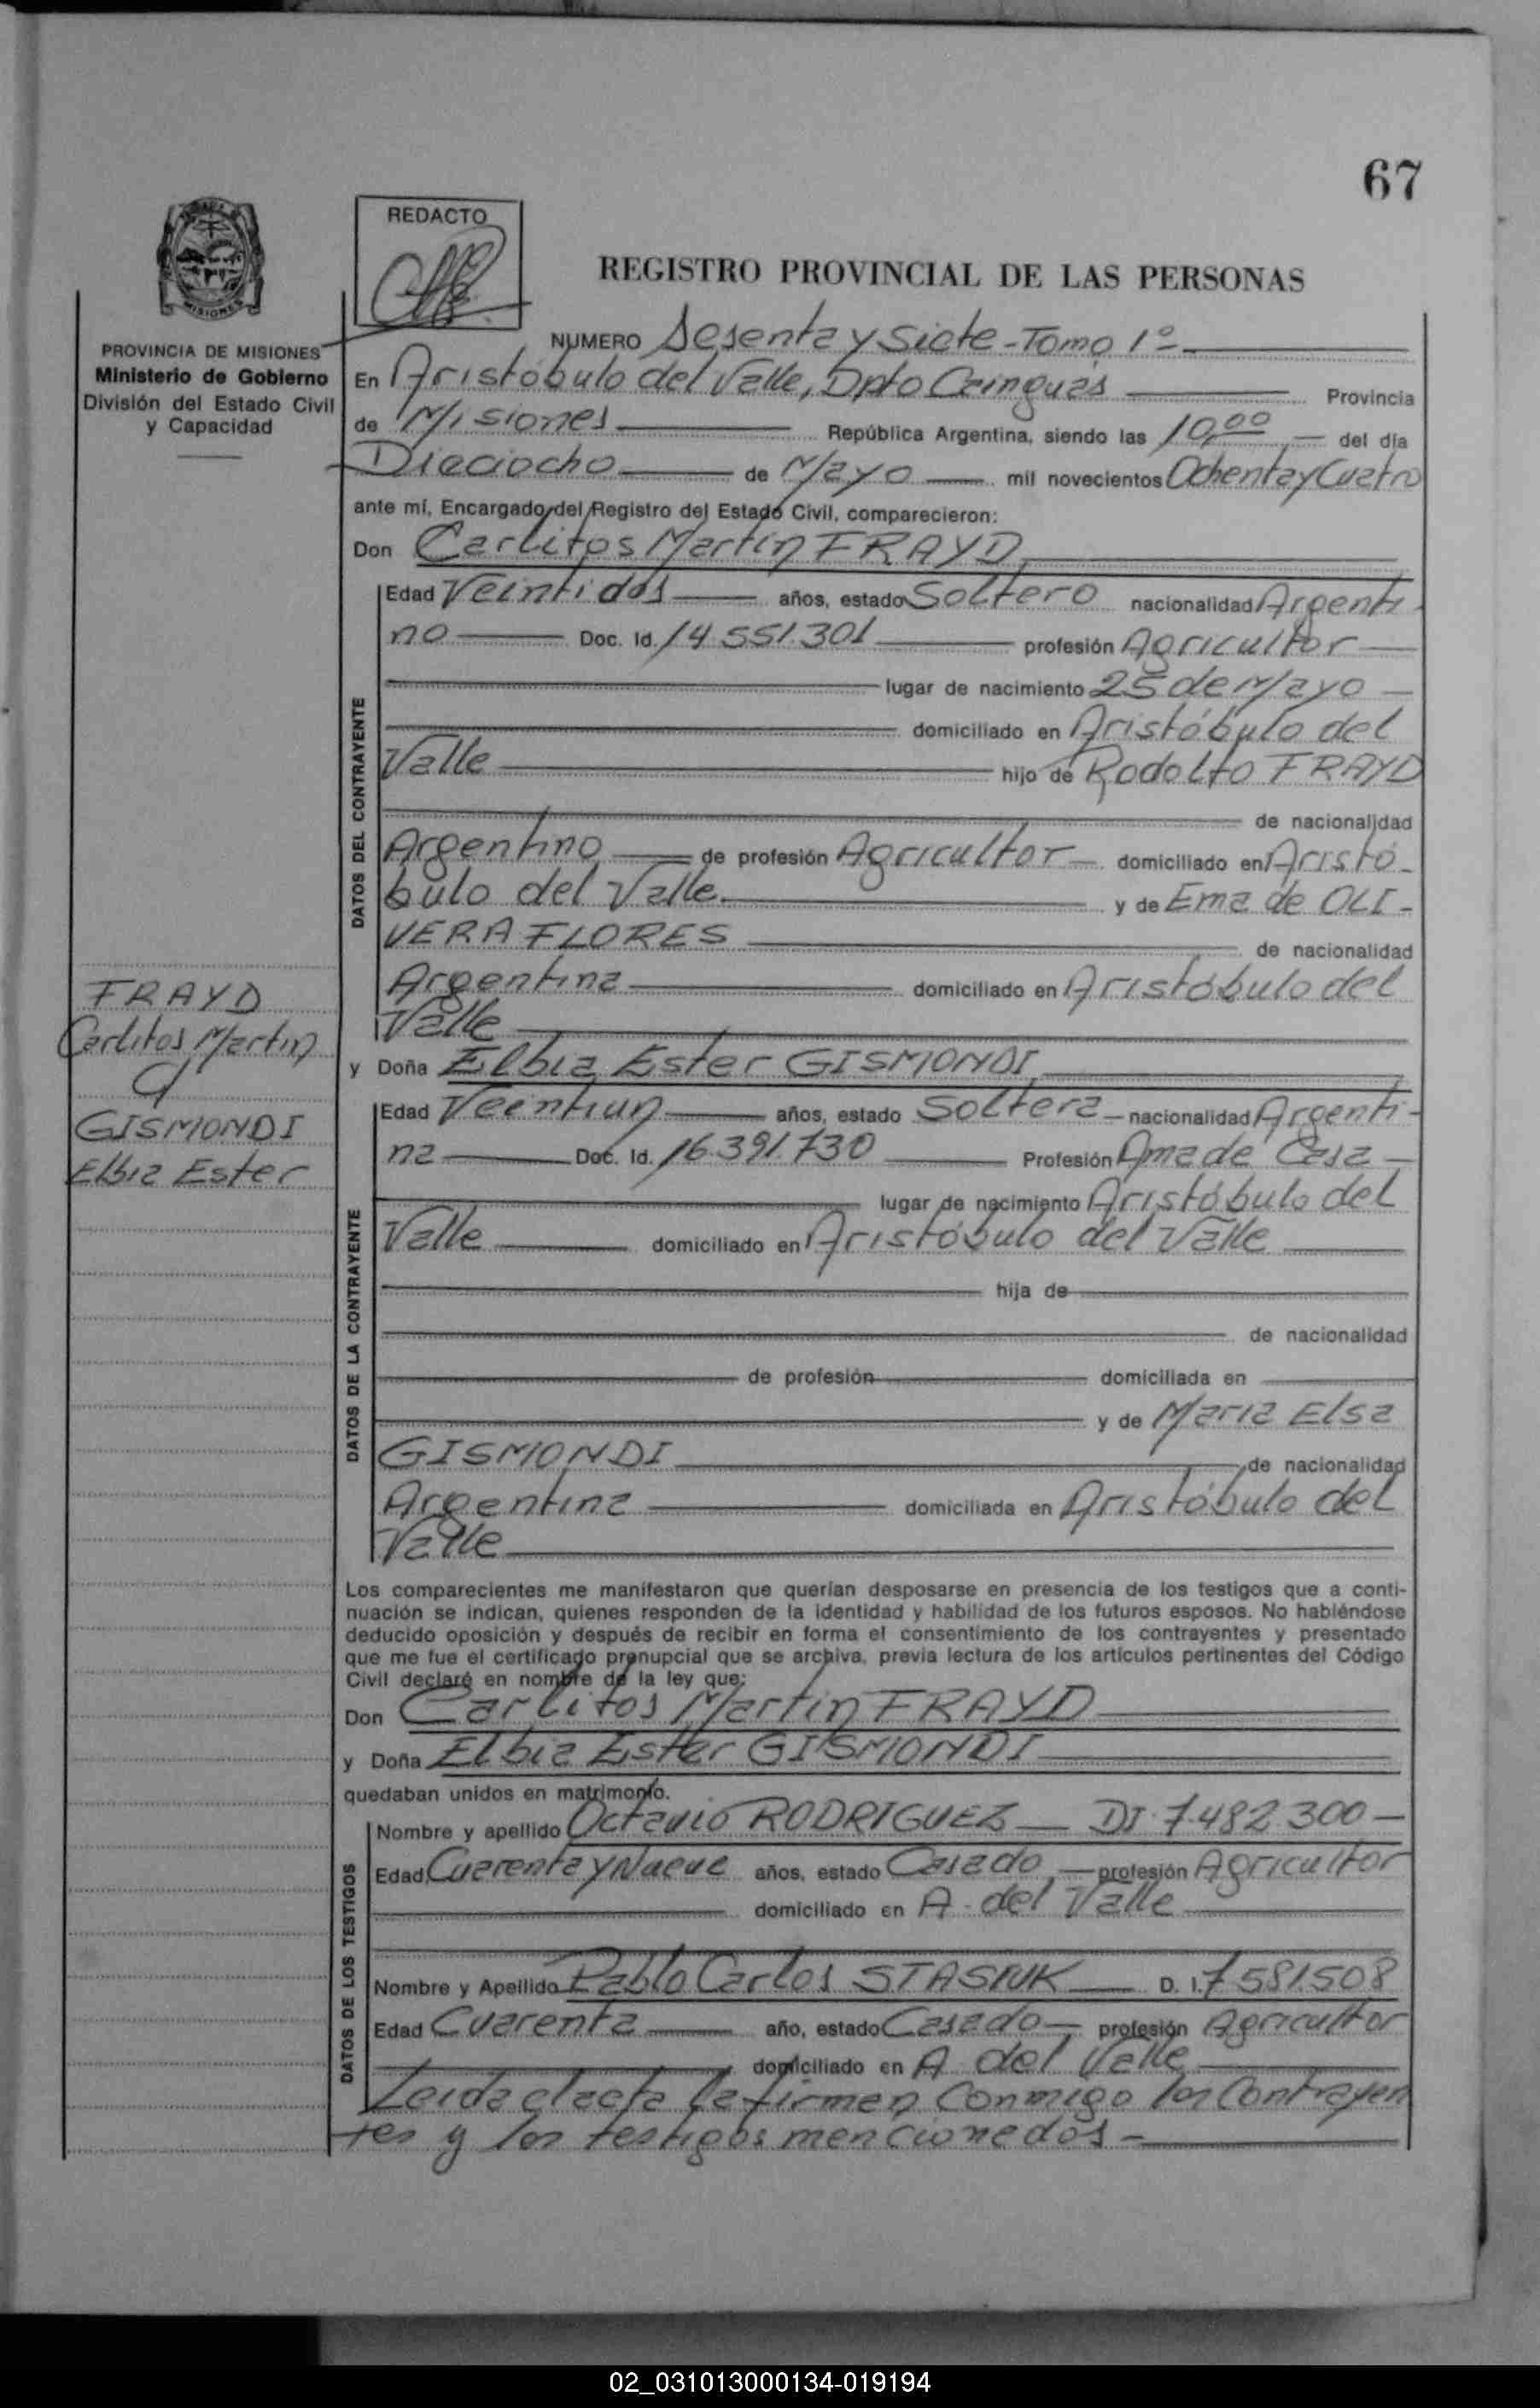 67
REDACTO
REGISTRO PROVINCIAL DE LAS PERSONAS
MISIONES
PROVINCIA DE MISIONES
Ministerio de Gobierno
División del Estado Civil
y Capacidad
NUMERO Sesenta y Siete - Tomo 1º
En Aristóbulo del Valle, Dpto Cainguás Provincia
de Misiones República Argentina, siendo las 10,00 del día
Dieciocho de Mayo mil novecientos Ochenta y Cuatro
ante mí, Encargado del Registro del Estado Civil, comparecieron:
Don Carlitos Martin FRAYD
DATOS DEL CONTRAYENTE
Edad Veintidos años, estado Soltero nacionalidad Argenti-
no Doc. Id. 14.551.301 profesión Agricultor
lugar de nacimiento 25 de Mayo
domiciliado en Aristóbulo del
Valle hijo de Rodolfo FRAYD
de nacionalidad
Argentino de profesión Agricultor domiciliado en Aristó-
bulo del Valle y de Ema de OLI-
VERA FLORES de nacionalidad
Argentina domiciliado en Aristóbulo del
Valle
FRAYD
Carlitos Martin
c/
GISMONDI
Elbia Ester
y Doña Elbia Ester GISMONDI
DATOS DE LA CONTRAYENTE
Edad Veintiun años, estado Soltera nacionalidad Argenti-
na Doc. Id. 16.391.730 Profesión Ama de Casa
lugar de nacimiento Aristóbulo del
Valle domiciliado en Aristóbulo del Valle
hija de
de nacionalidad
de profesión domiciliada en
y de Maria Elsa
GISMONDI de nacionalidad
Argentina domiciliada en Aristóbulo del
Valle
Los comparecientes me manifestaron que querían desposarse en presencia de los testigos que a conti-
nuación se indican, quienes responden de la identidad y habilidad de los futuros esposos. No habiéndose
deducido oposición y después de recibir en forma el consentimiento de los contrayentes y presentado
que me fue el certificado prenupcial que se archiva, previa lectura de los artículos pertinentes del Código
Civil declaré en nombre de la ley que:
Don Carlitos Martin FRAYD
y Doña Elbia Ester GISMONDI
quedaban unidos en matrimonio.
DATOS DE LOS TESTIGOS
Nombre y apellido Octavio RODRIGUEZ DI 7.482.300
Edad Cuarenta y Nueve años, estado Casado profesión Agricultor
domiciliado en A. del Valle
Nombre y Apellido Pablo Carlos STASIUK D. I. 7.581.508
Edad Cuarenta año, estado Casado profesión Agricultor
domiciliado en A del Valle
Leida el acta la firman conmigo los Contrayen
tes y los testigos mencionados -
02_031013000134-019194